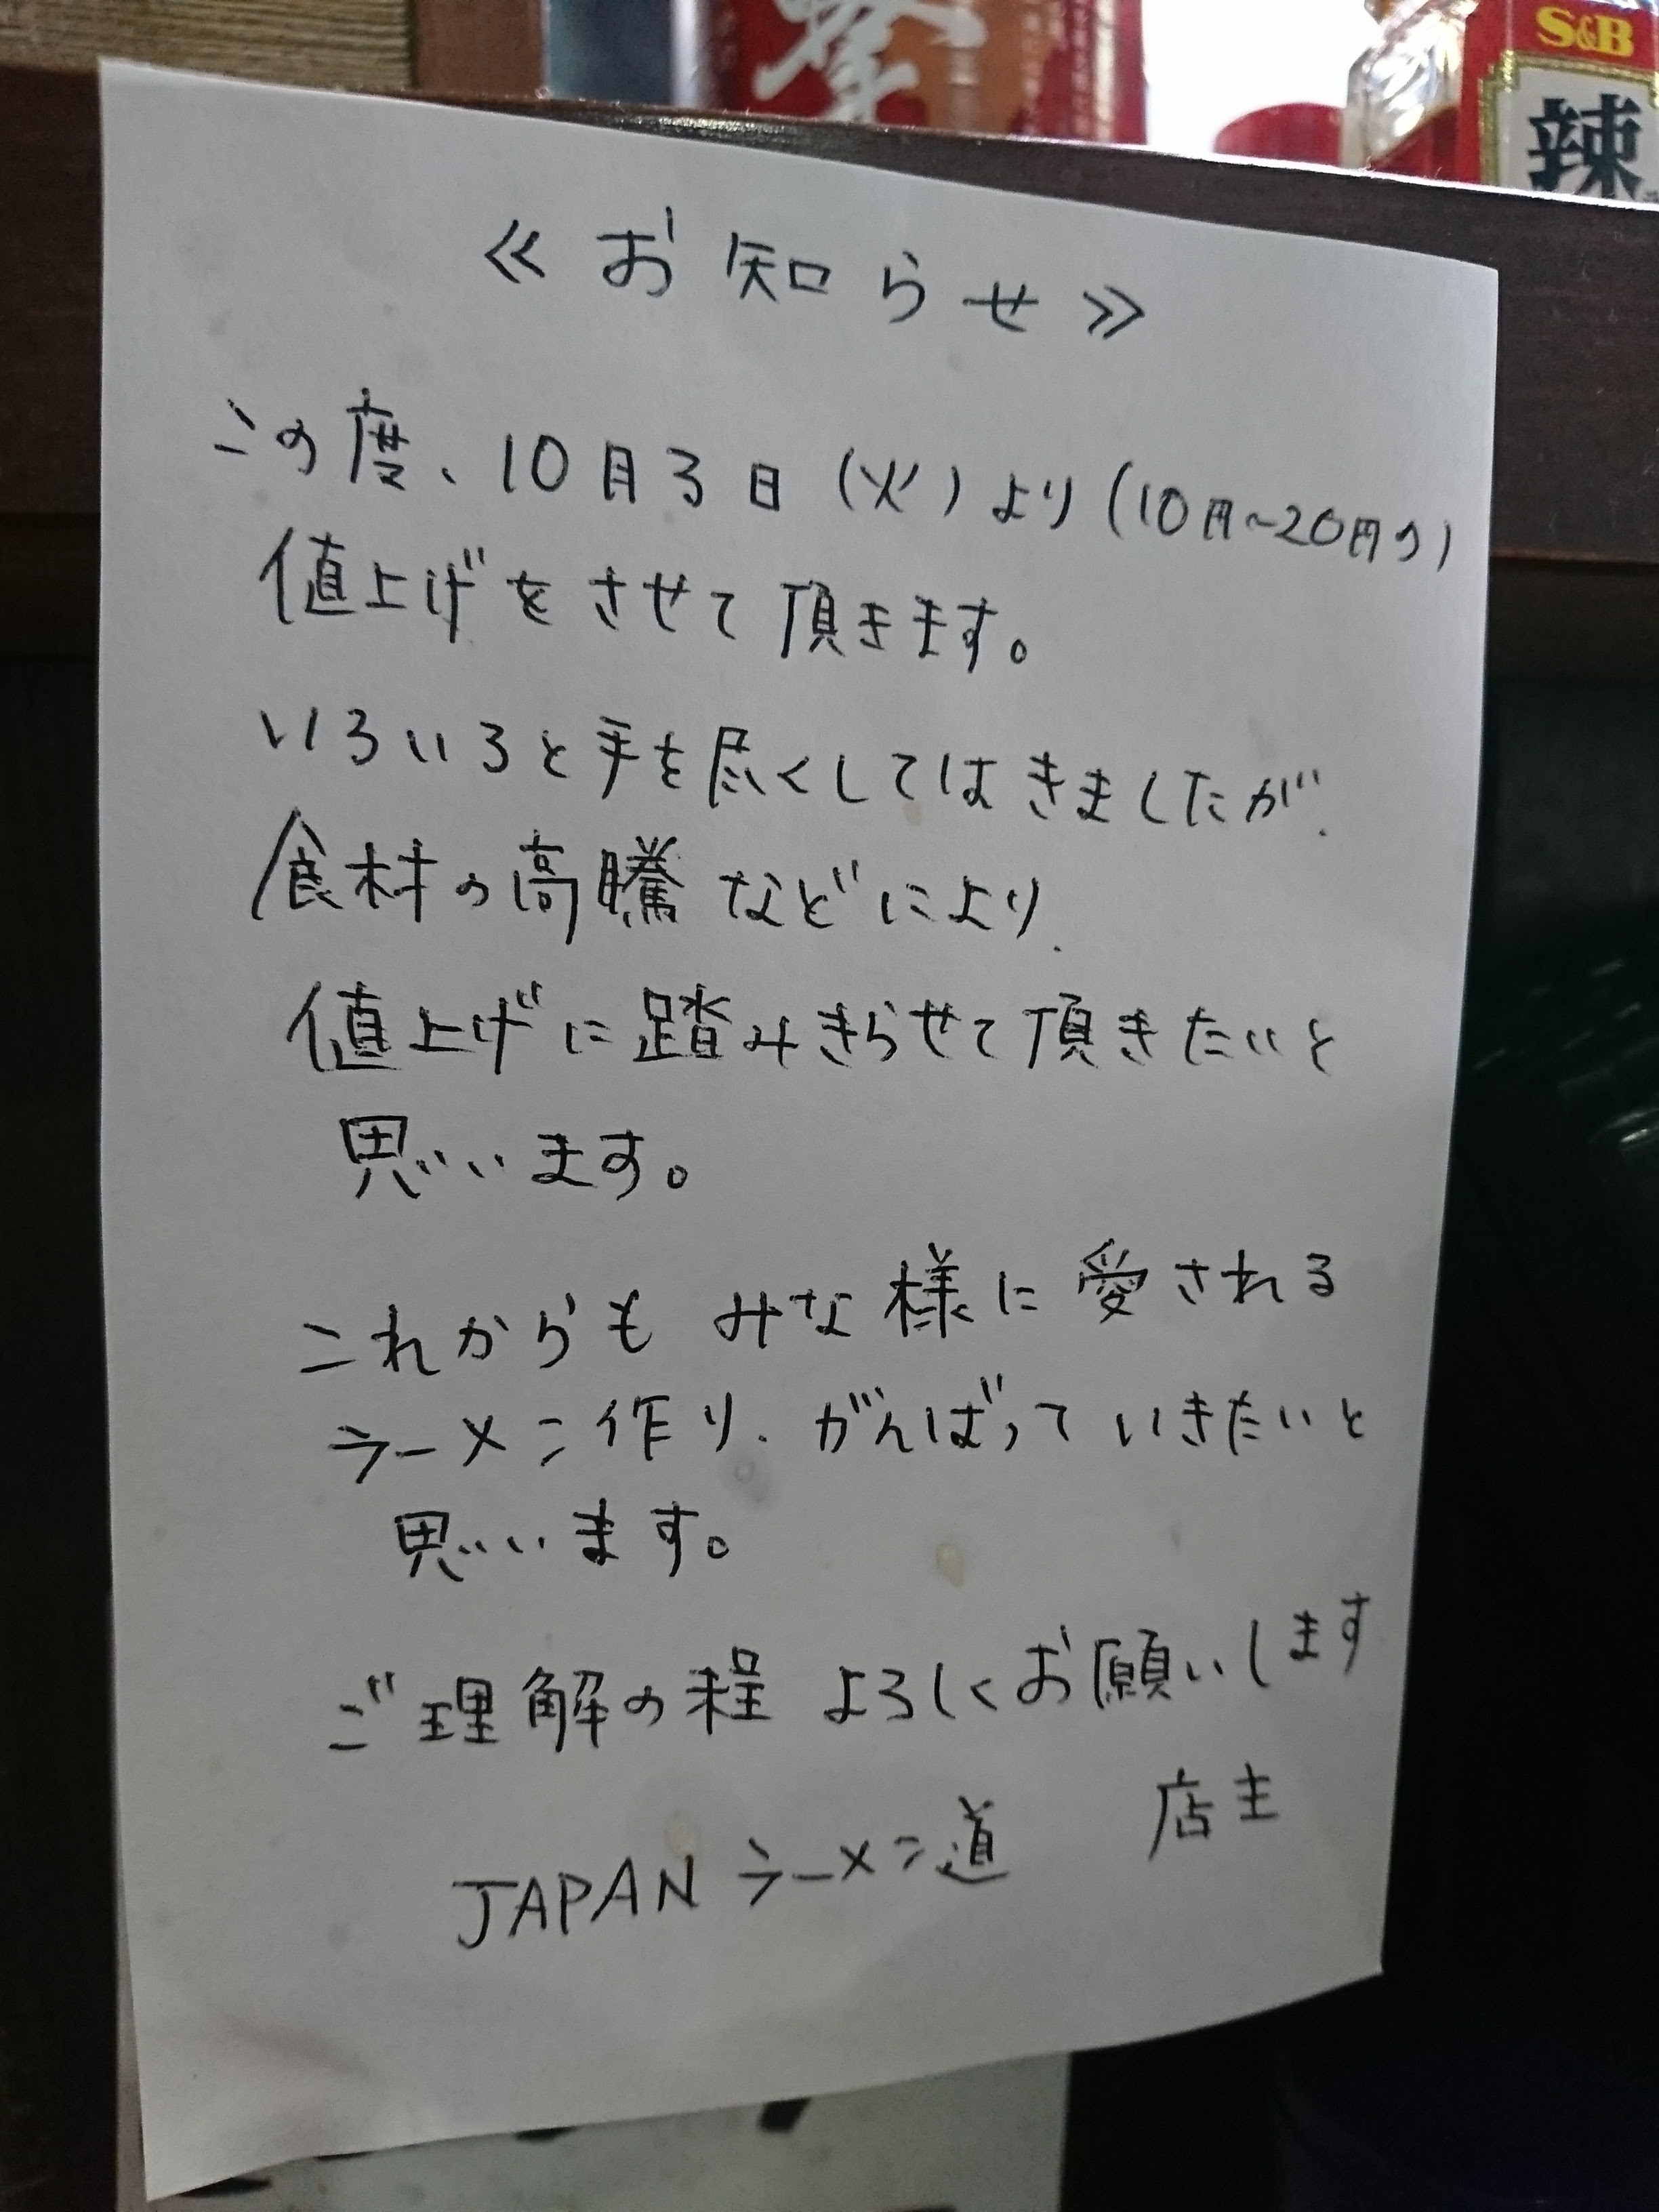 S&B
辣
≪お知らせ≫
この度、10月3日(火)より(10円~20円の)
値上げをさせて頂きます。
いろいろと手を尽くしてはきましたが、
食材の高騰などにより、
値上げに踏みきらせて頂きたいと
思います。
これからもみな様に愛される
ラーメン作り、がんばっていきたいと
思います。
ご理解の程よろしくお願いします
店主
JAPANラーメン道